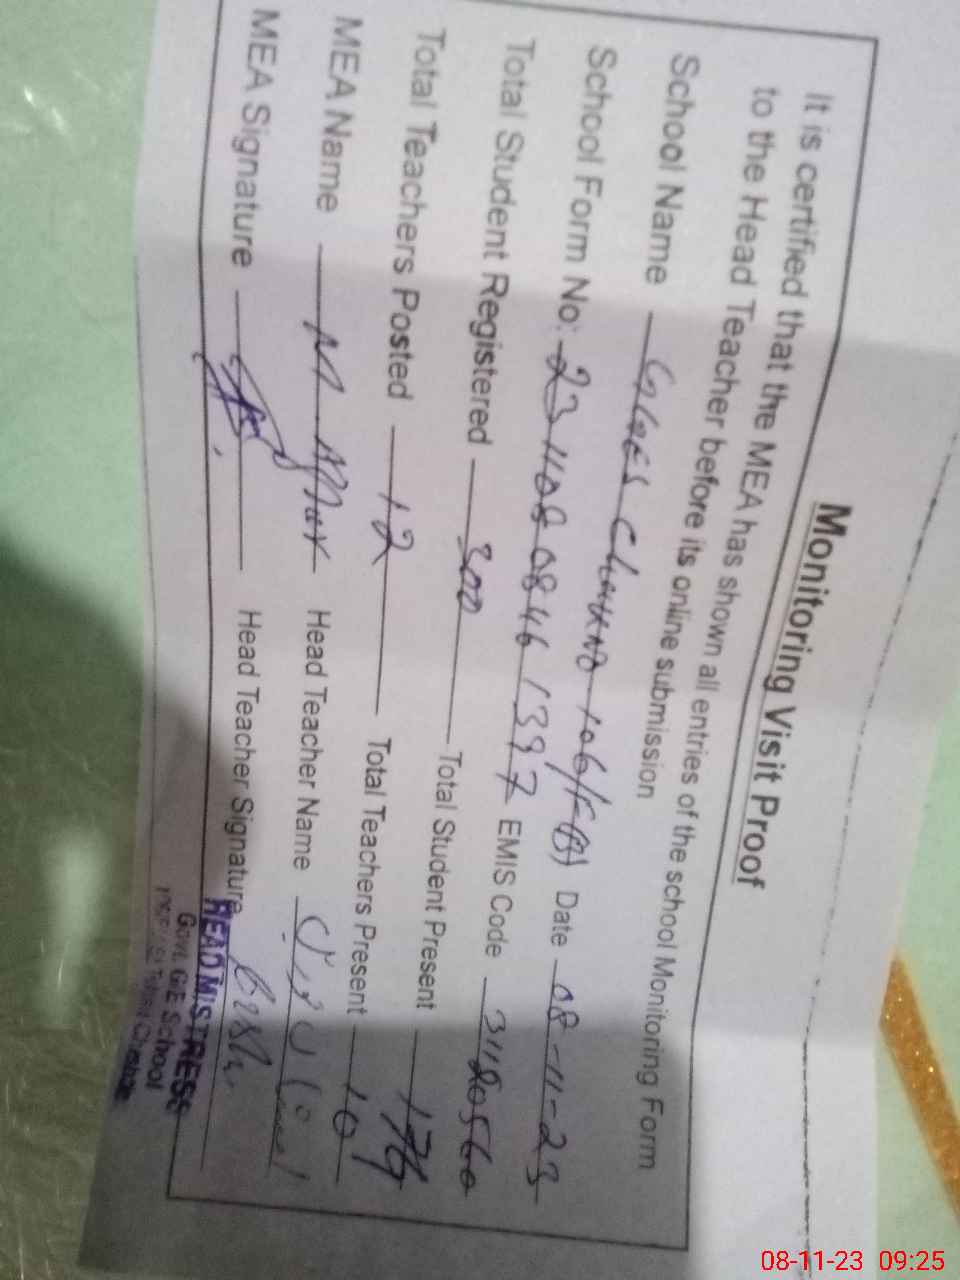 Monitoring Visit Proof
It is certified that the MEA has shown all entries of the school Monitoring Form
to the Head Teacher before its online submission
School Name GGES Chak No 106/F(A) Date 08-11-23
School Form No: 23110808461397 EMIS Code 31120560
Total Student Registered 300 Total Student Present 174
Total Teachers Posted 12 Total Teachers Present 10
MEA Name M Head Teacher Name
MEA Signature Head Teacher Signature
HEADMISTRESS
Govt. G/E School
08-11-23 09:25